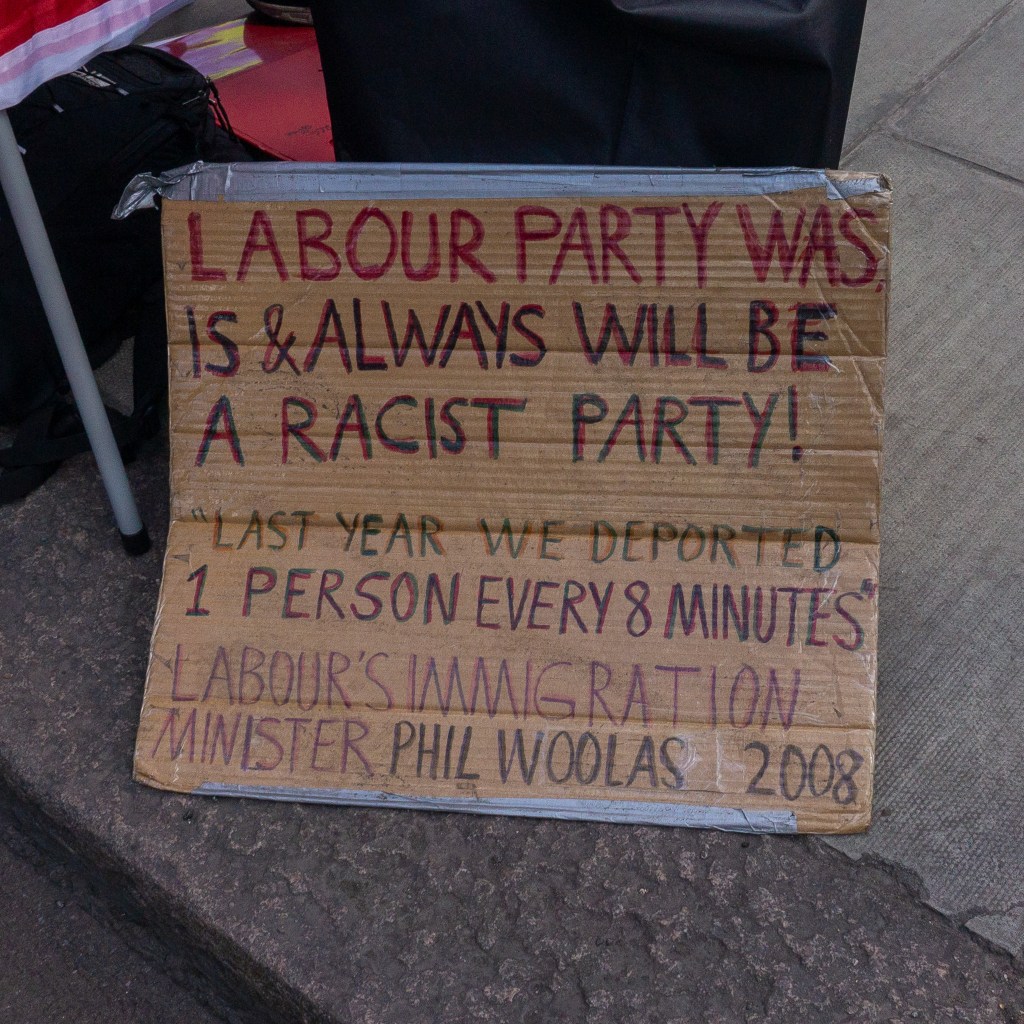 LABOUR PARTY WAS,
IS & ALWAYS WILL BE
A RACIST PARTY!
"LAST YEAR WE DEPORTED
1 PERSON EVERY 8 MINUTES"
LABOUR'S IMMIGRATION
MINISTER PHIL WOOLAS 2008